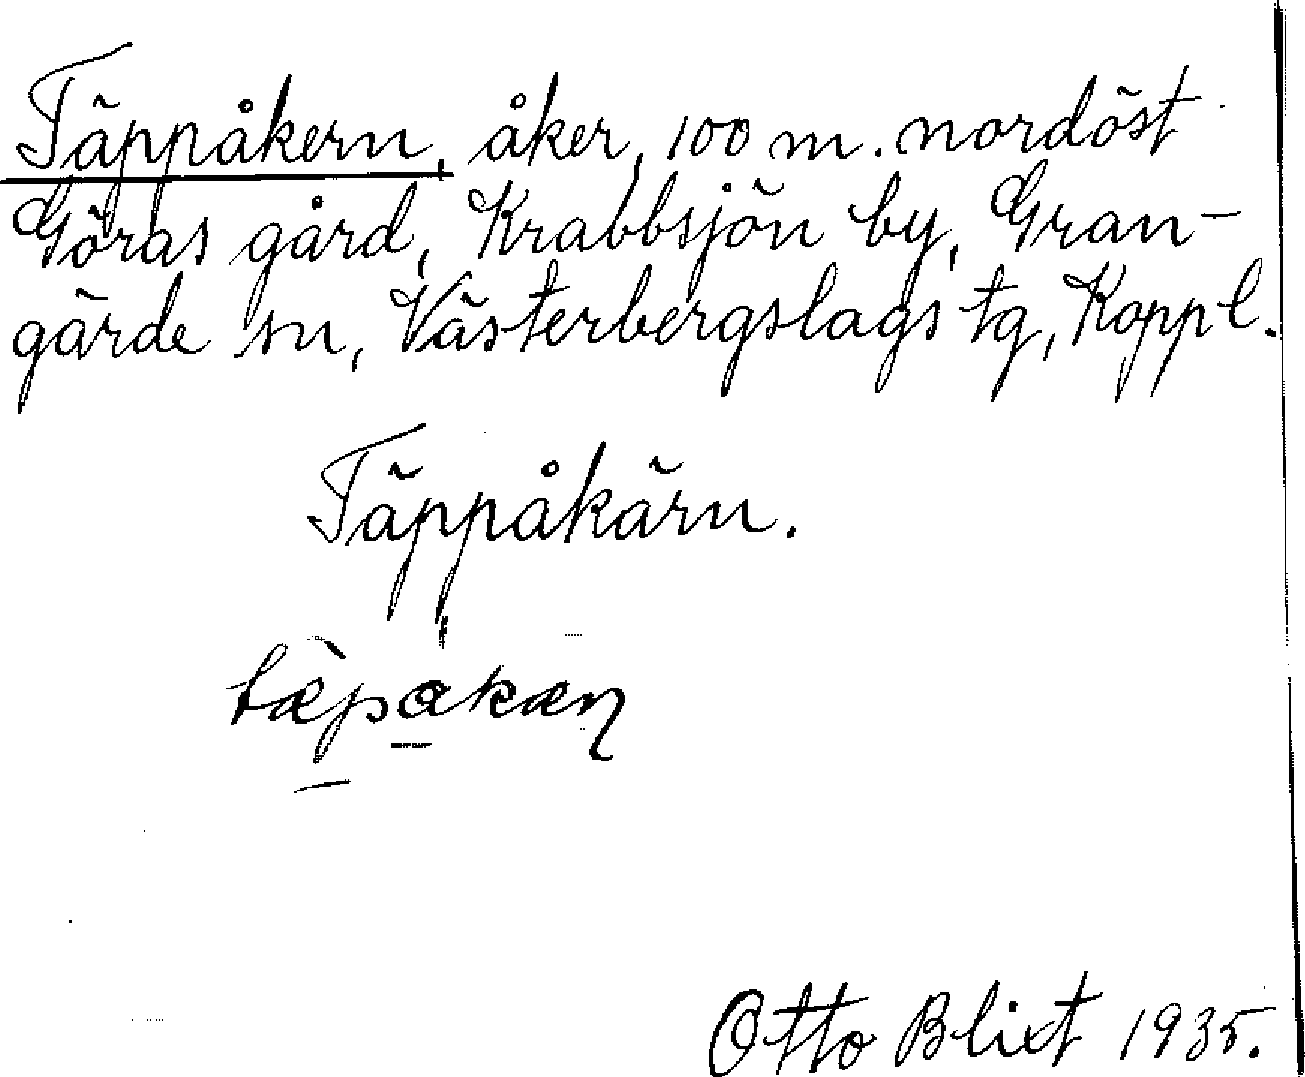 Täppåkern, åker, 100 m. nordöst
Göras gård, Krabbsjön by, Gran-
gärde sn, Västerbergslags tg, Koppl.
Täppåkärn.
tæ̀pakæɳ
Otto Blixt 1935.